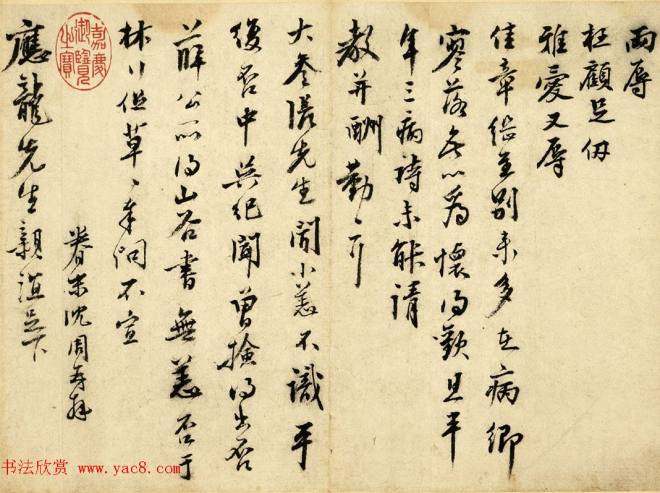 兩辱
枉顧足仞
雅愛又辱
佳章從至別來多在病鄉
寥落無以為懷得歎且平
年三病詩未能請
教并酬勤〻耳
大參隱先生聞小恙不識平
復否中吳紀聞曾撿得出否
薛公所得山谷書無恙否于
林八但草〻奉問不宣
眷末沈周再拜
應龍先生親誼足下
嘉慶御覽之寶
书法欣赏 www.yac8.com